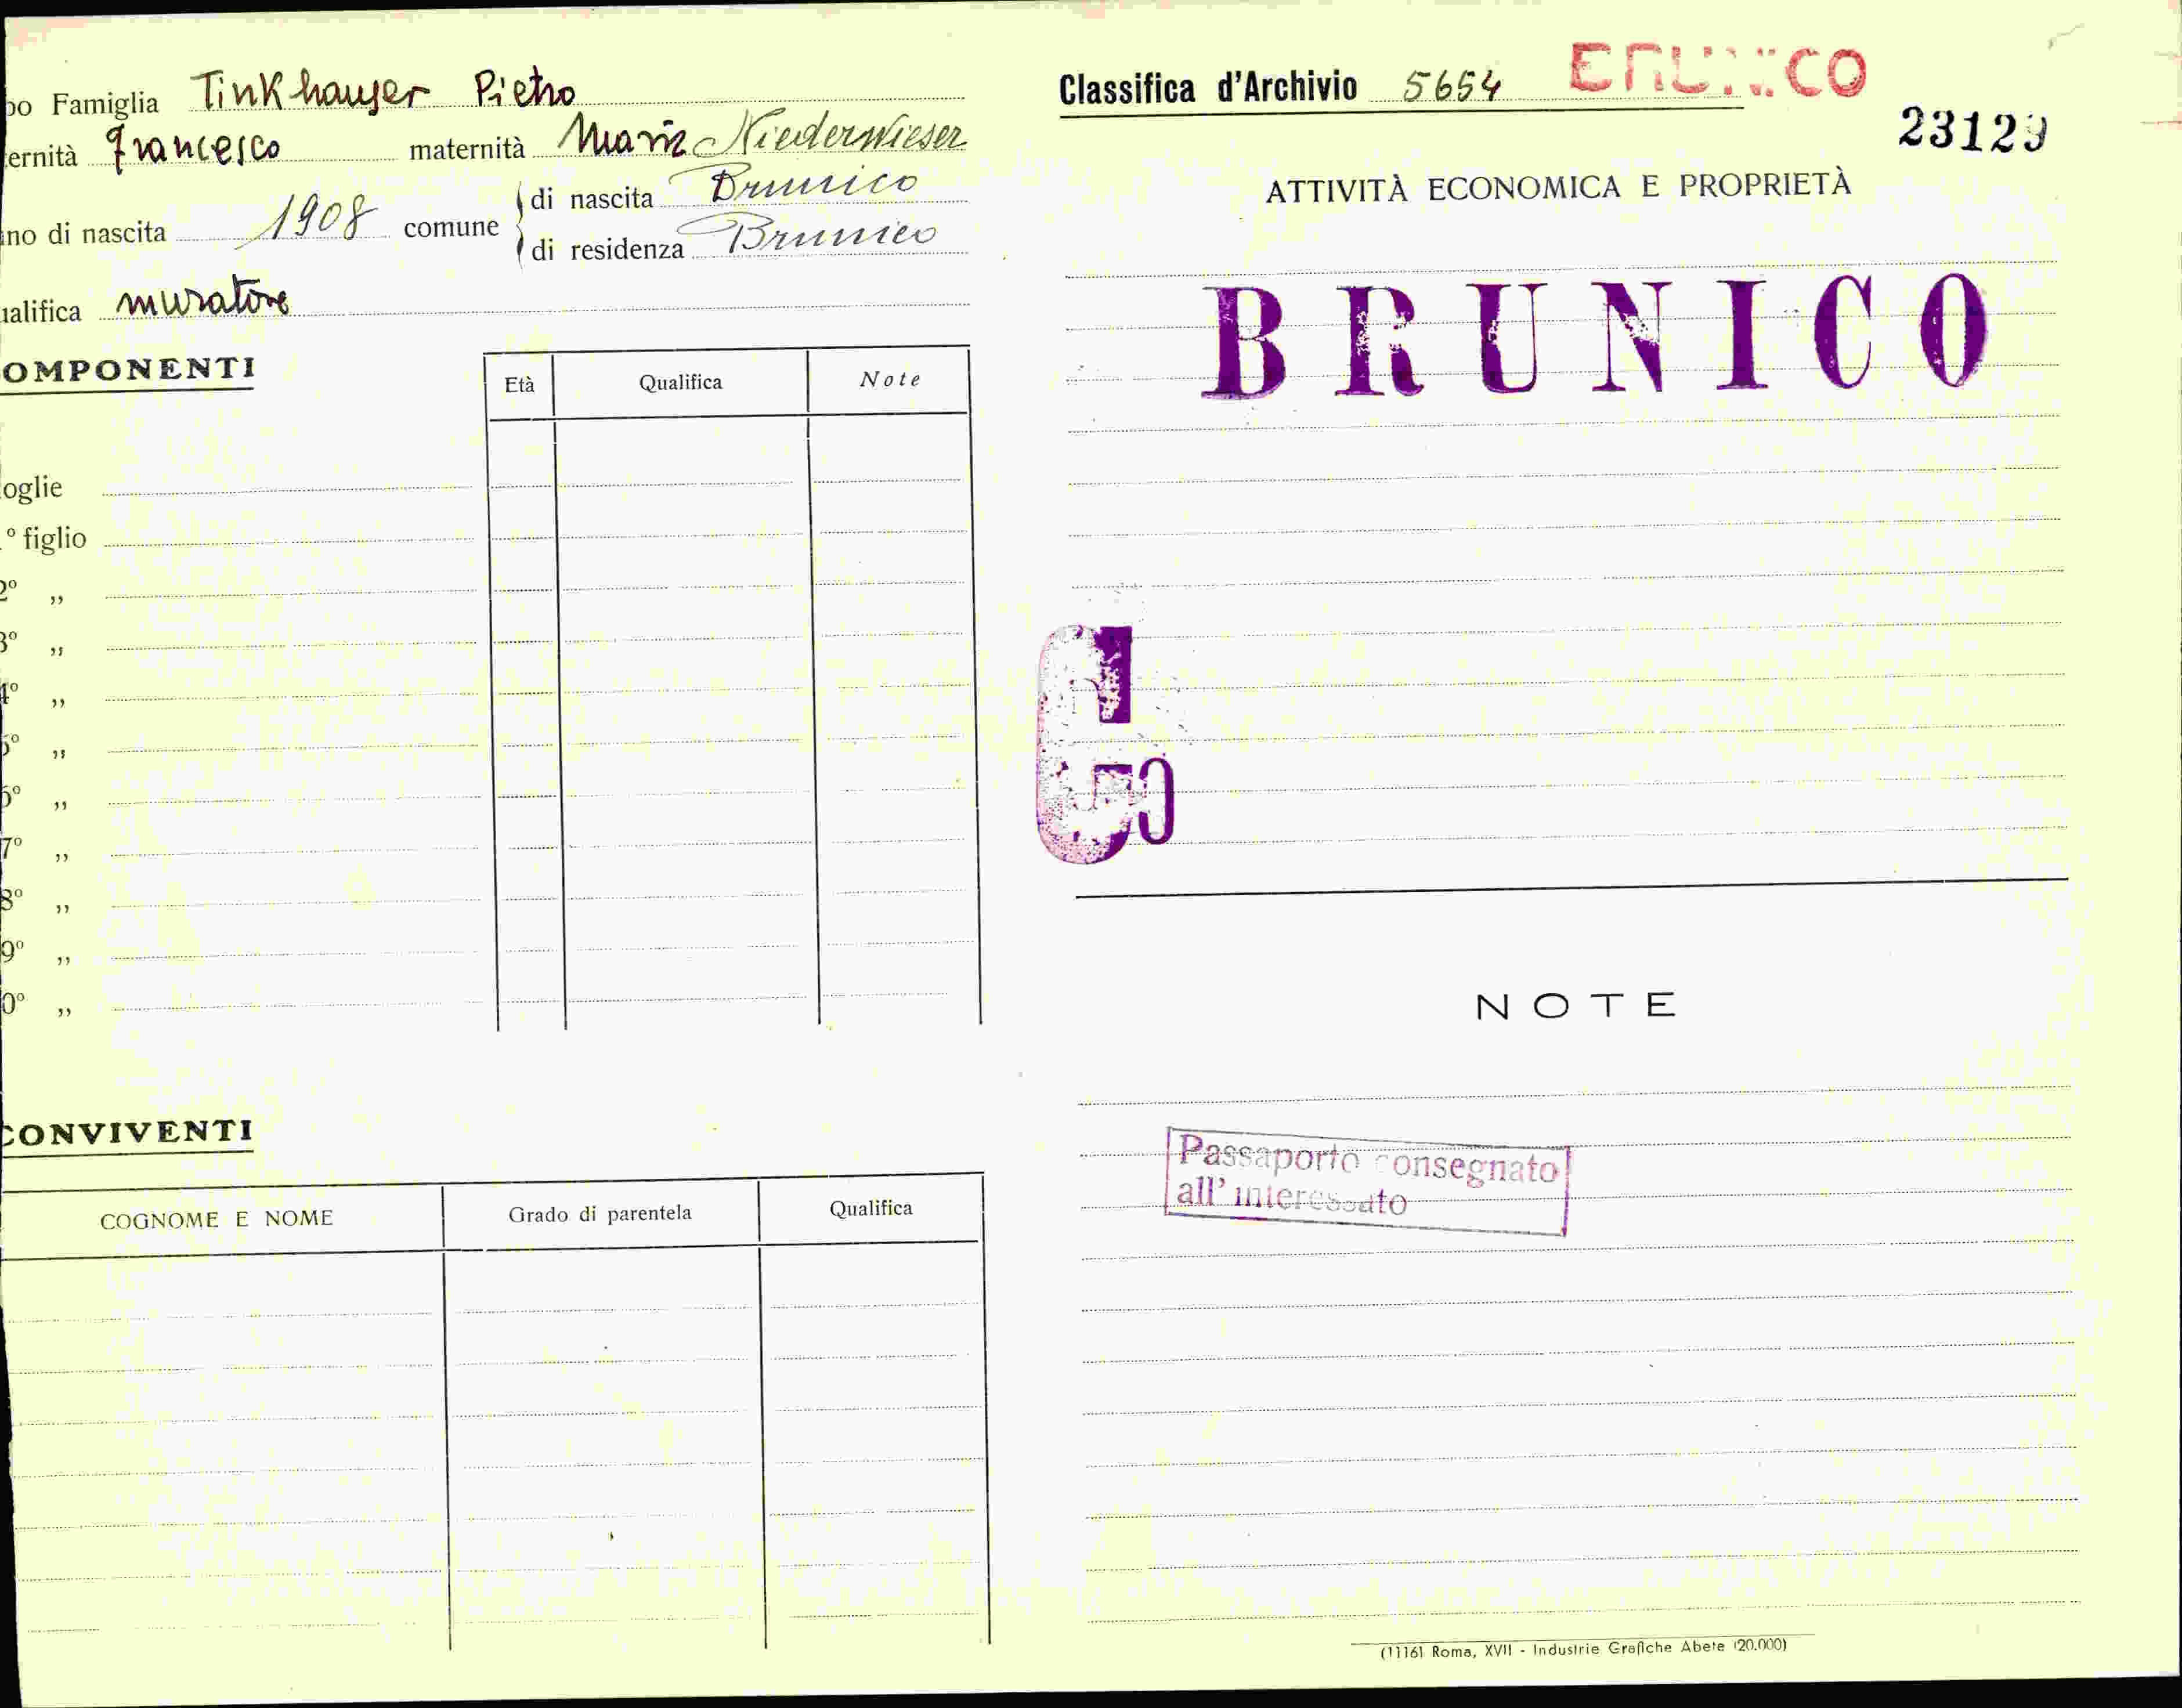 po Famiglia Tinkhauser Pietro
ernità Francesco maternità Maria Niederwieser
no di nascita 1908 comune di nascita Brunico
di residenza Brunico
ualifica muratore
OMPONENTI
Età Qualifica Note
oglie
° figlio
2° ,,
3° ,,
4° ,,
5° ,,
6° ,,
7° ,,
8° ,,
9° ,,
0° ,,
CONVIVENTI
COGNOME E NOME Grado di parentela Qualifica
Classifica d'Archivio 5654 BRUNICO
23129
ATTIVITÀ ECONOMICA E PROPRIETÀ
BRUNICO
NOTE
Passaporto consegnato
all'interessato
(11161 Roma, XVII - Industrie Grafiche Abete (20.000)